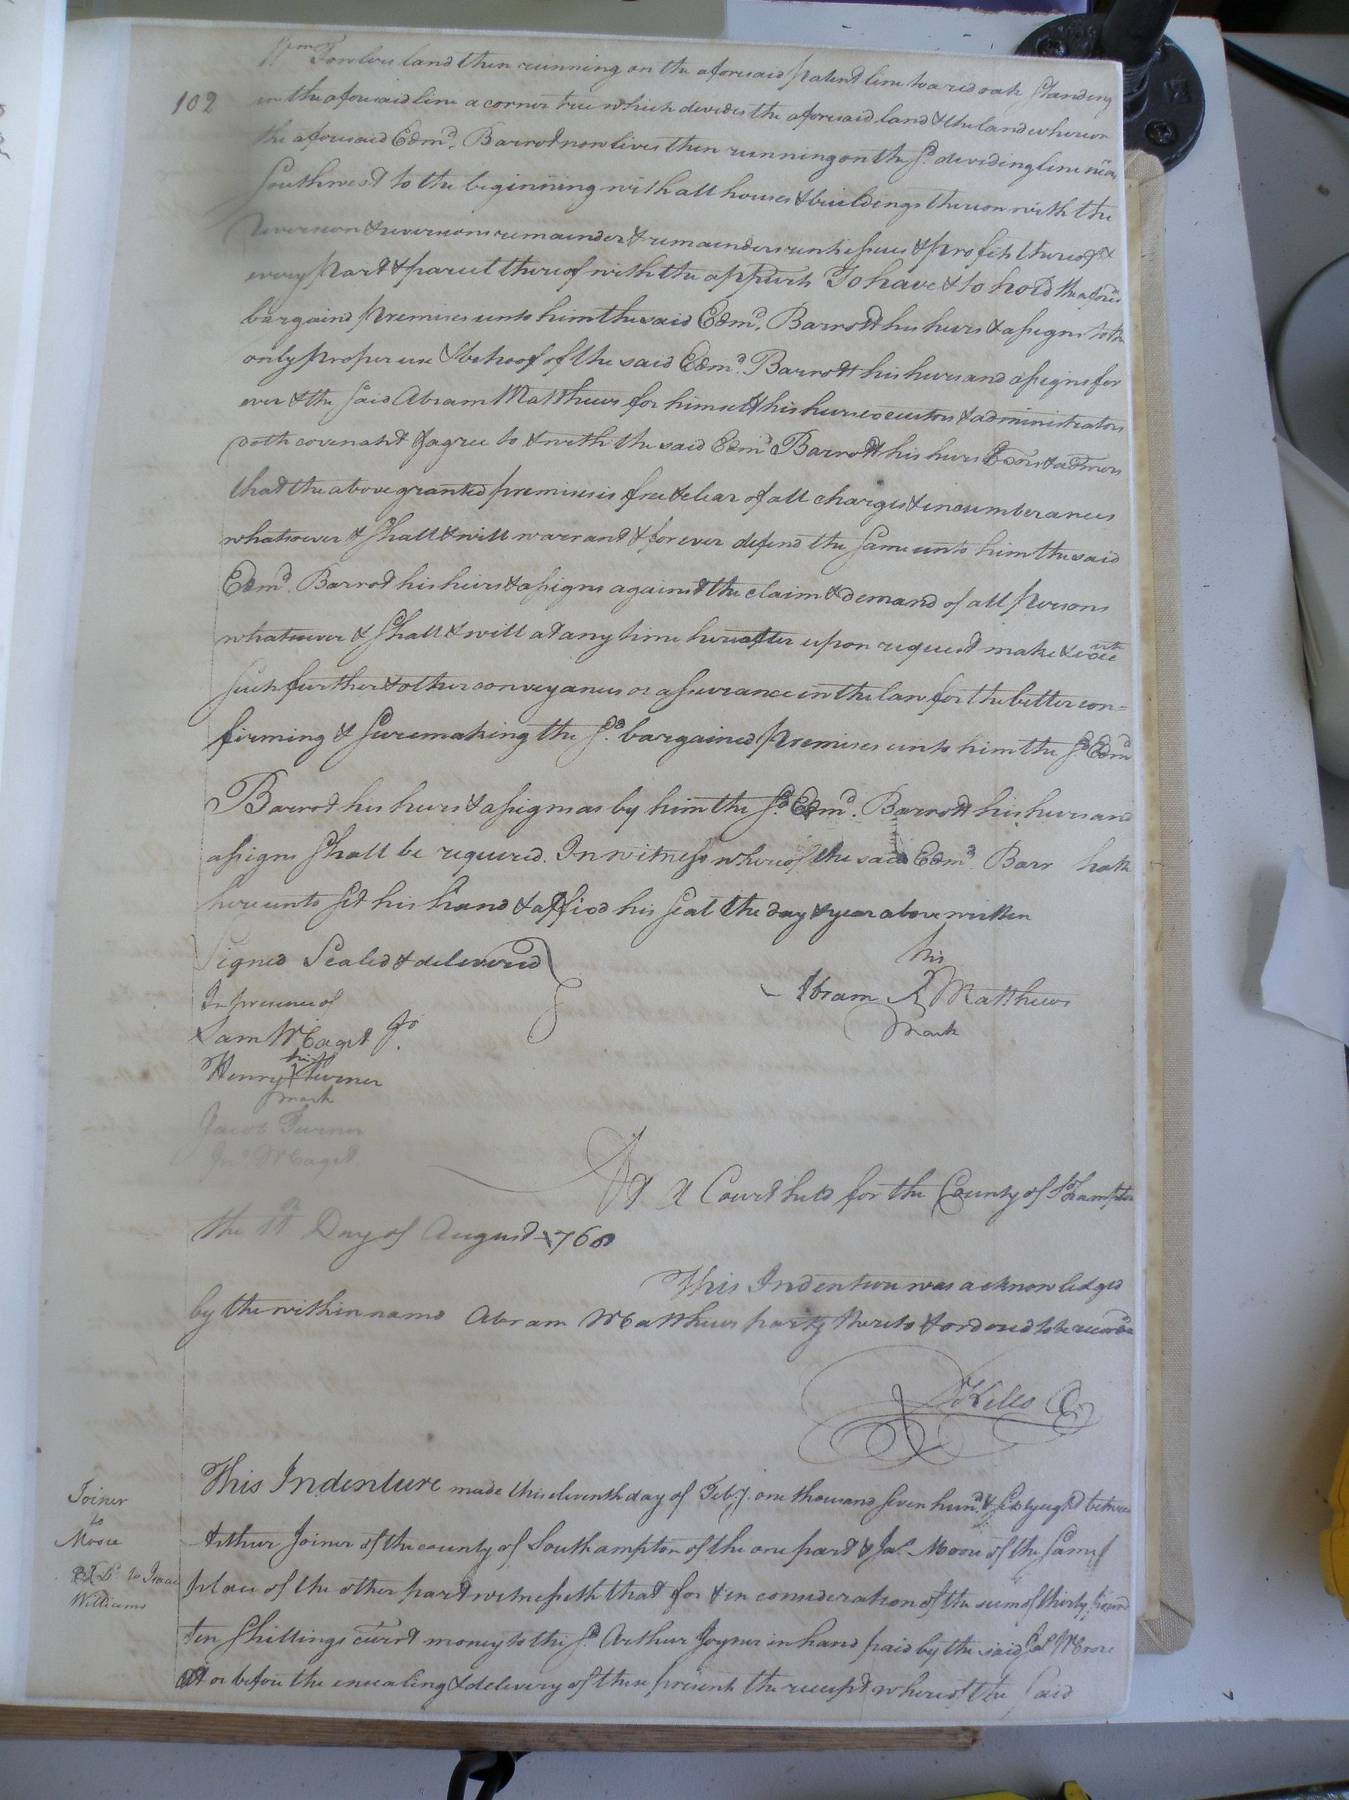 102
Wm Fowlers land then running on the aforesaid patent line to a red oak Standing
in the aforesaid line a corner tree which devides the aforesaid land & the land whereon
the aforesaid Edmd. Barrot now lives then running on the sd. devideing line
Southwest to the beginning with all houses & buildings thereon with the
reversion & reversions remainder & remainders rents issues & profits thereof &
every part & parcel thereof with the appurts To have & to hold the afores
bargaind premises unto him the said Edmd. Barrott his heirs & assigns to the
only proper use & behoof of the said Edmd. Barrott his heirs and assigns for
ever & the said Abram Matthews for himself his heirs executors & administrators
doth covenant & agree to & with the said Edmd Barrott his heirs Exors & admors
that the above granted premises is free & clear of all charges & incumberances
whatsoever & shall & will warrant & forever defend the same unto him the said
Edmd. Barrot his heirs & assigns against the claim & demand of all persons
whatsoever & shall & will at any time hereafter upon request make & exe
such further & other conveyances or assurance in the law for the better con=
firming & suremaking the sd. bargained premises unto him the sd Edmd
Barrot his heirs & assigns as by him the sd. Edmd. Barrott his heirs and
assigns shall be required. In witness whereof the said Edmd Barr hath
hereunto set his hand & affixd his seal the day & year above written
Signed Sealed & delivered
In presence of
Sam Magit Jr.
Henry his Turner
mark
Jacob Turner
Jno Magit
his
Abram Matthews
mark
At A Court held for the County of Sohampton
the 11th Day of August 1768
This Indenture was acknowledged
by the within namd Abram Matthews party thereto & ordered to be recorded
Kello
Joiner
to
Moore
to Isaac
Williams
This Indenture made this eleventh day of Feby. one thousand seven hund. & sixty eight between
Arthur Joiner of the county of Southampton of the one part & Jas. Moore of the same
place of the other part witnesseth that for & in consideration of the sum of thirty pound
ten shillings curt money to the sd Arthur Joyner in hand paid by the said Jas Moore
at or before the ensealing & delivery of these present the receipt whereof the said